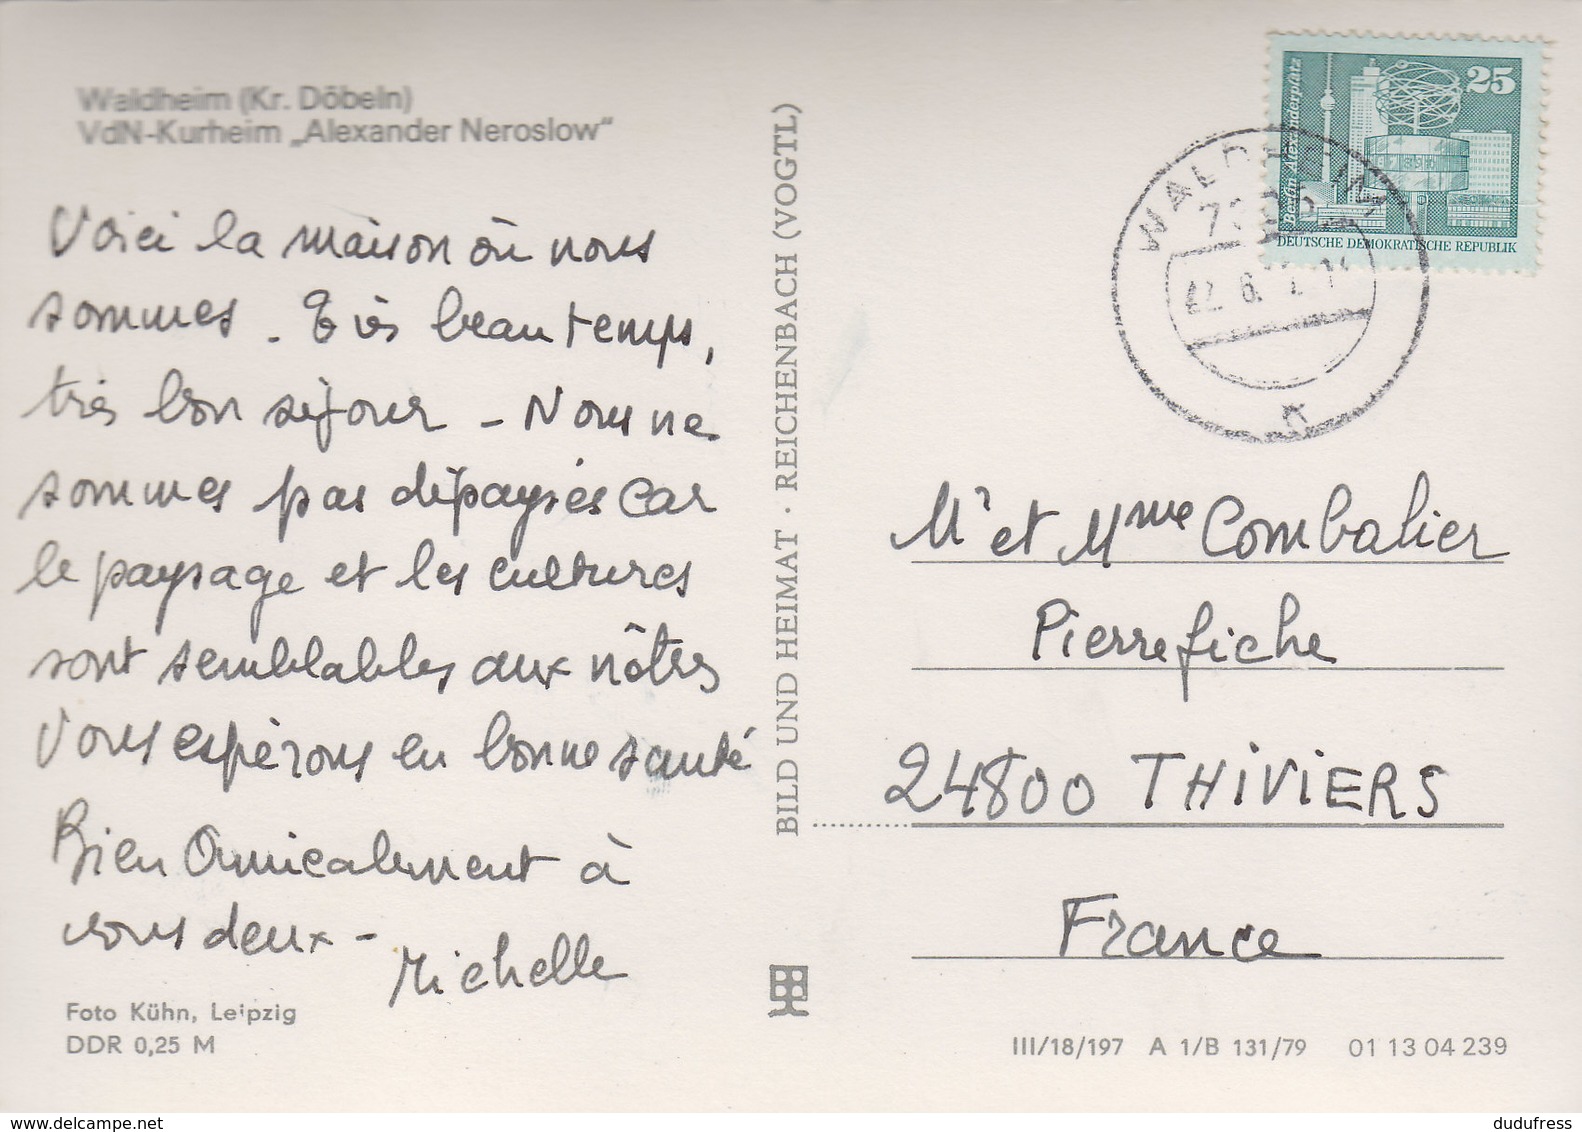 Waldheim (Kr. Döbeln)
VdN-Kurheim „Alexander Neroslow"
Voici la maison où nous
sommes. Très beau temps,
très bon séjour - Nous ne
sommes pas dépaysés car
le paysage et les cultures
sont semblables aux nôtres
Vous espérons en bonne santé
Bien Amicalement à
vous deux - Michelle
Foto Kühn, Leipzig
DDR 0,25 M
BILD UND HEIMAT · REICHENBACH (VOGTL)
25
Berlin Alexanderplatz
DEUTSCHE DEMOKRATISCHE REPUBLIK
WALDHEIM
Mr et Mme Combalier
Pierrefiche
24800 THIVIERS
France
III/18/197 A 1/B 131/79 01 13 04 239
dudufress